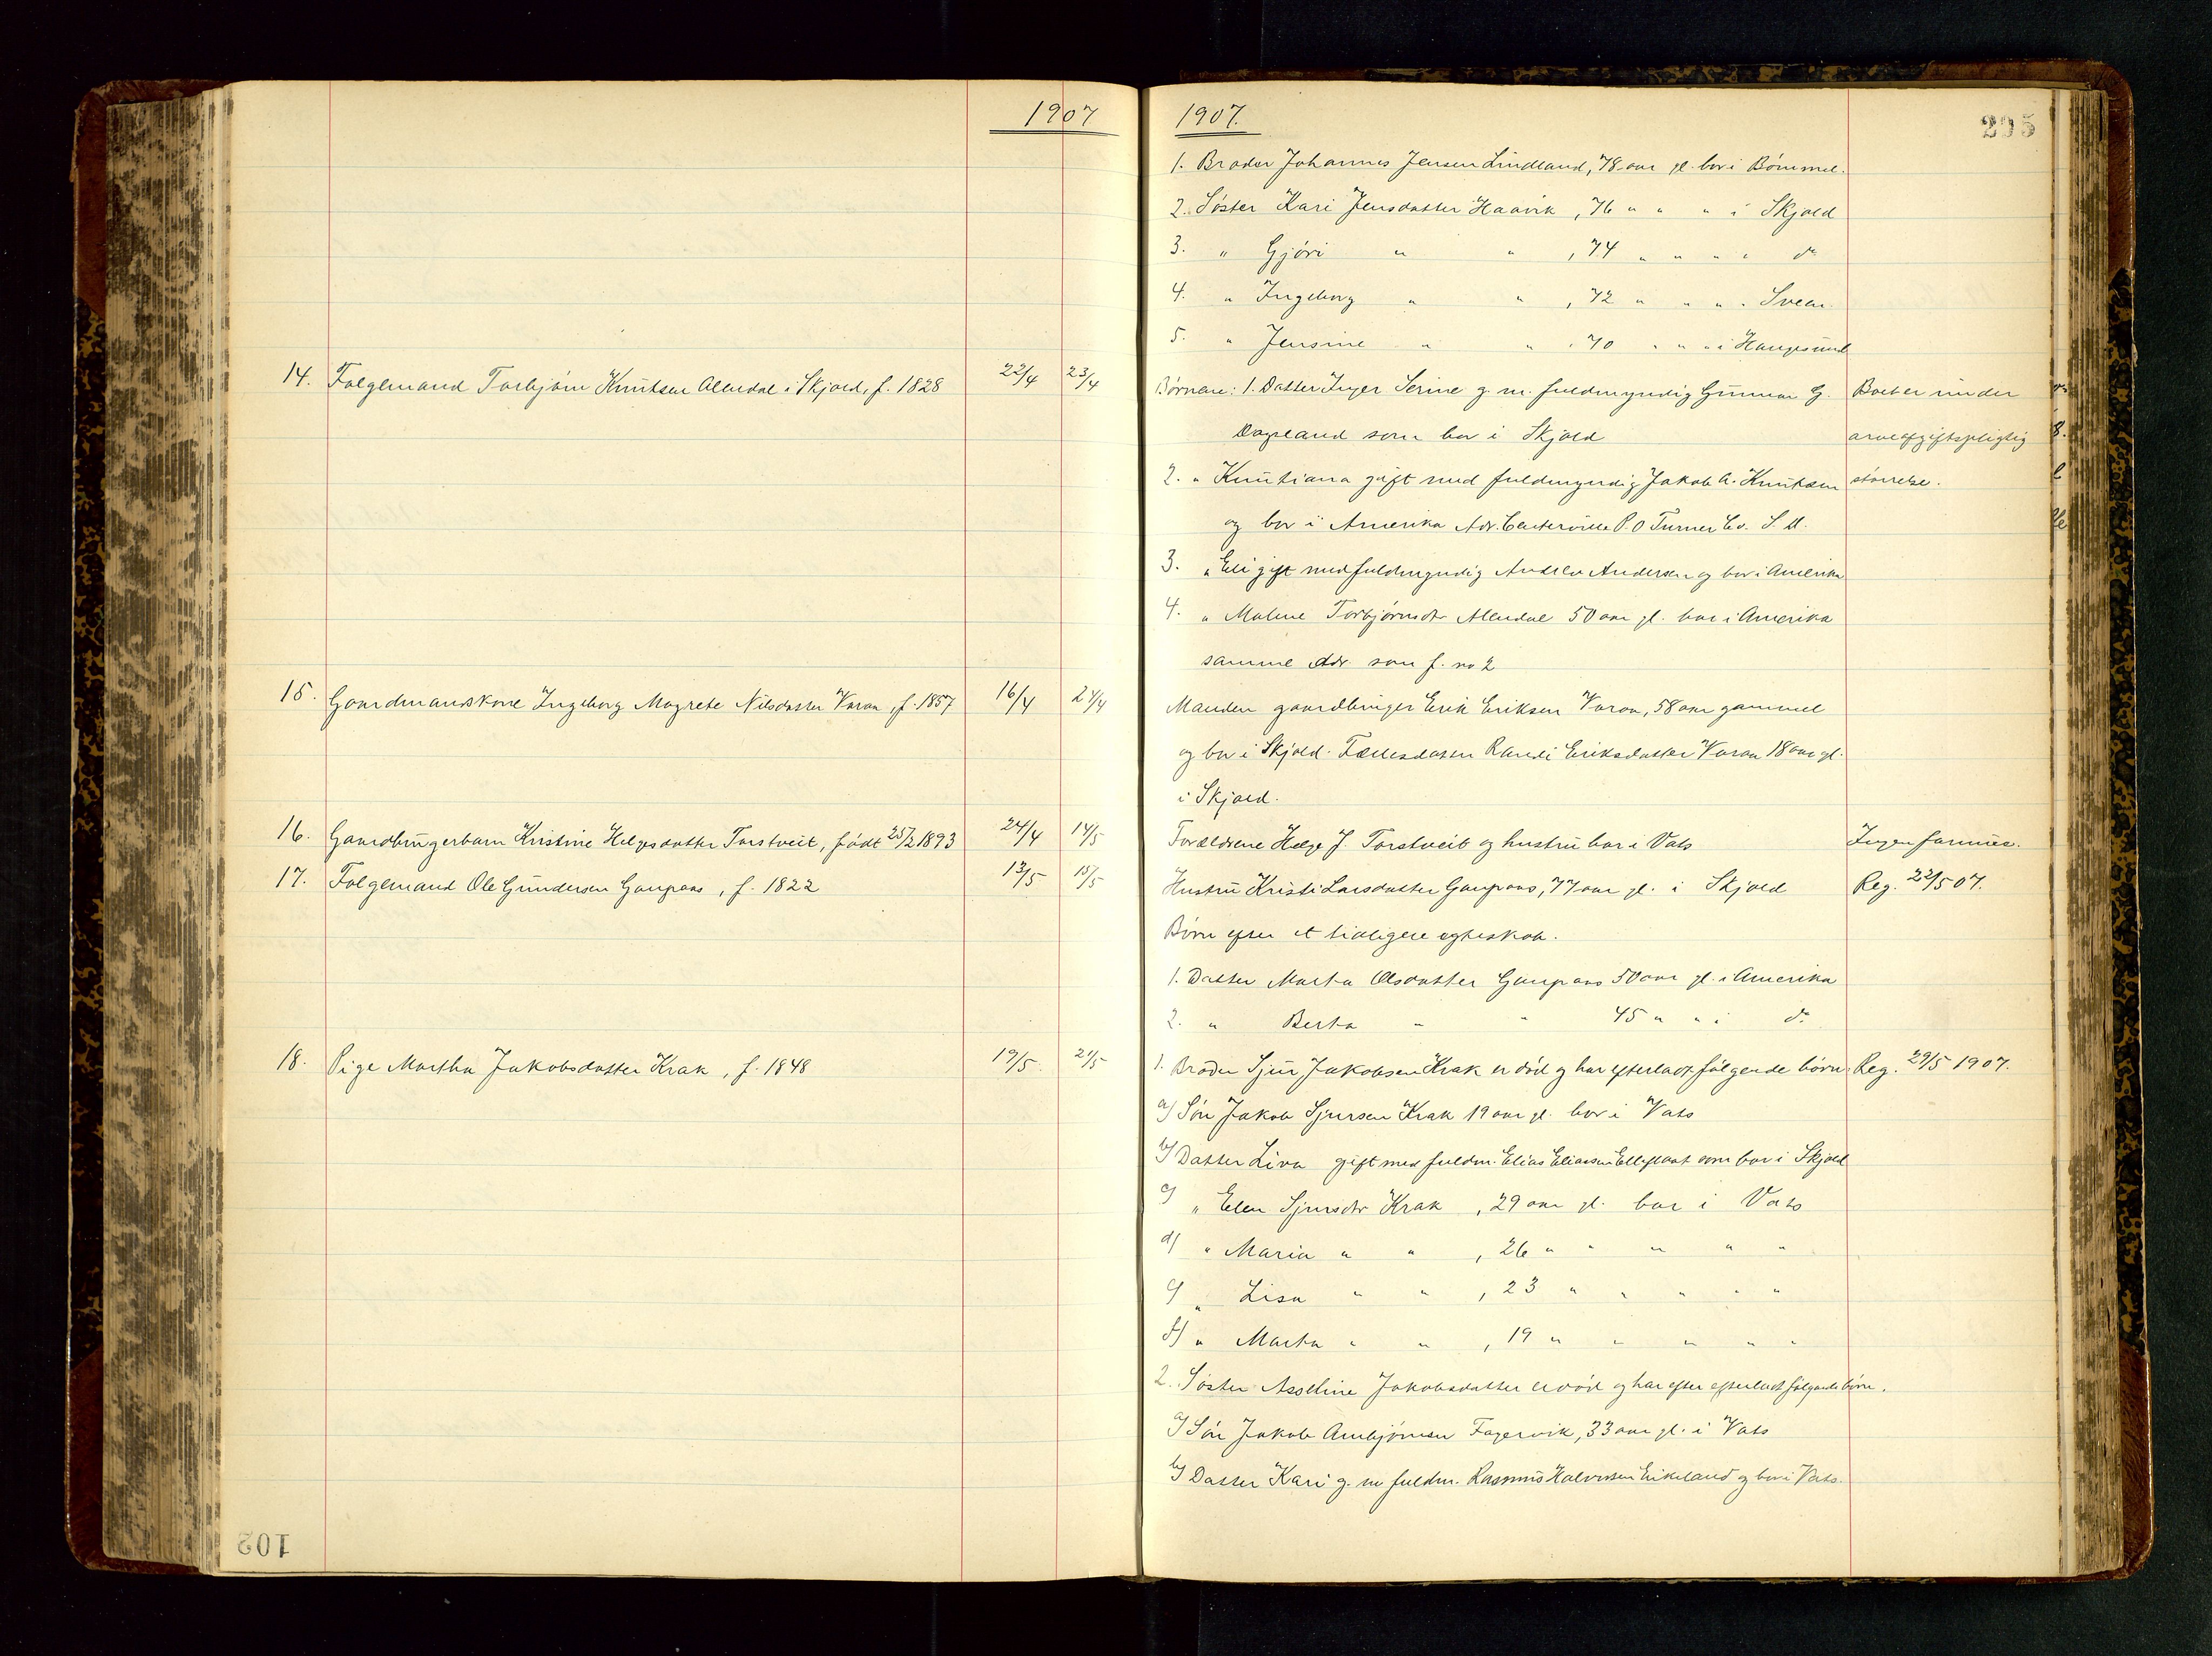 1907
14. Folgemand Torbjørn Knutsen Alendal i Skjold, f. 1828 22/4 23/4
15. Gaardmandskone Ingeborg Magrete Nilsdatter Varaa, f. 1857 16/4 24/4
16. Gaardbrugerbarn Kristine Helgesdatter Torstveit, født 25/2 1893 24/4 14/5
17. Folgemand Ole Gundersen Gaupaas, f. 1822 13/5 15/5
18. Pige Martha Jakobsdatter Krak, f. 1848 19/5. 21/5
102
1907.
205
1. Broder Johannes Jensen Lindland, 78 aar gl. bor i Bømmel.
2. Søster Kari Jensdatter Haavik, 76 " " " i Skjold
3. " Gjøri " " , 74 " " " " do
4. " Ingeborg " " , 72 " " " " Sveen
5. " Jensine " " , 70 " " " i Haugesund
Børnene: 1. Datter Inger Serine g. m. fuldmyndig Gunnar G. Boet er under
Dagsland som bor i Skjold arveafgiftspligtig
2. " Knutiana gift med fuldmyndig Jakob A. Knutsen størrelse.
og bor i Amerika Adr. Centerville P.O Turner Co. S. D.
3. " Eli gift med fuldmyndig Andrew Andersen og bor i Amerika
4. " Malene Torbjørnsdtr Alendal 50 aar gl. bor i Amerika
samme Adr. som f. no 2
Manden gaardbruger Erik Eriksen Varaa, 58 aar gammel
og bor i Skjold. Fællesdatter Randi Eriksdatter Varaa 18 aar gl.
i Skjold.
Forældrene Helge J. Torstveit og hustru bor i Vats Ingen formue.
Hustru Kristi Larsdatter Gaupaas, 77 aar gl. i Skjold Reg. 22/5 07.
Børn efter et tidligere egteskab.
1. Datter Marta Olsdatter Gaupaas 50 aar gl. i Amerika
2. " Berta " " 45 " " i do
1. Broder Sjur Jakobsen Krak er død og har efterladt følgende børn: Reg. 29/5 1907.
a) Søn Jakob Sjursen Krak 19 aar gl. bor i Vats
b) Datter Liva gift med fuldm. Elias Eliassen som bor i Skjold
c) " Elen Sjursdtr Krak , 29 aar gl. bor i Vats
d) " Maria " " , 26 " " " " "
e) " Lisa " " , 23 " " " " "
f) " Marta " " , 19 " " " " "
2. Søster Asseline Jakobsdatter er død og har efter efterladt følgende børn.
a) Søn Jakob Arnbjørnsen Fagervik, 33 aar gl. i Vats
b) Datter Kari g. m fuldm. Rasmus Halvorsen Eikeland og bor i Vats.